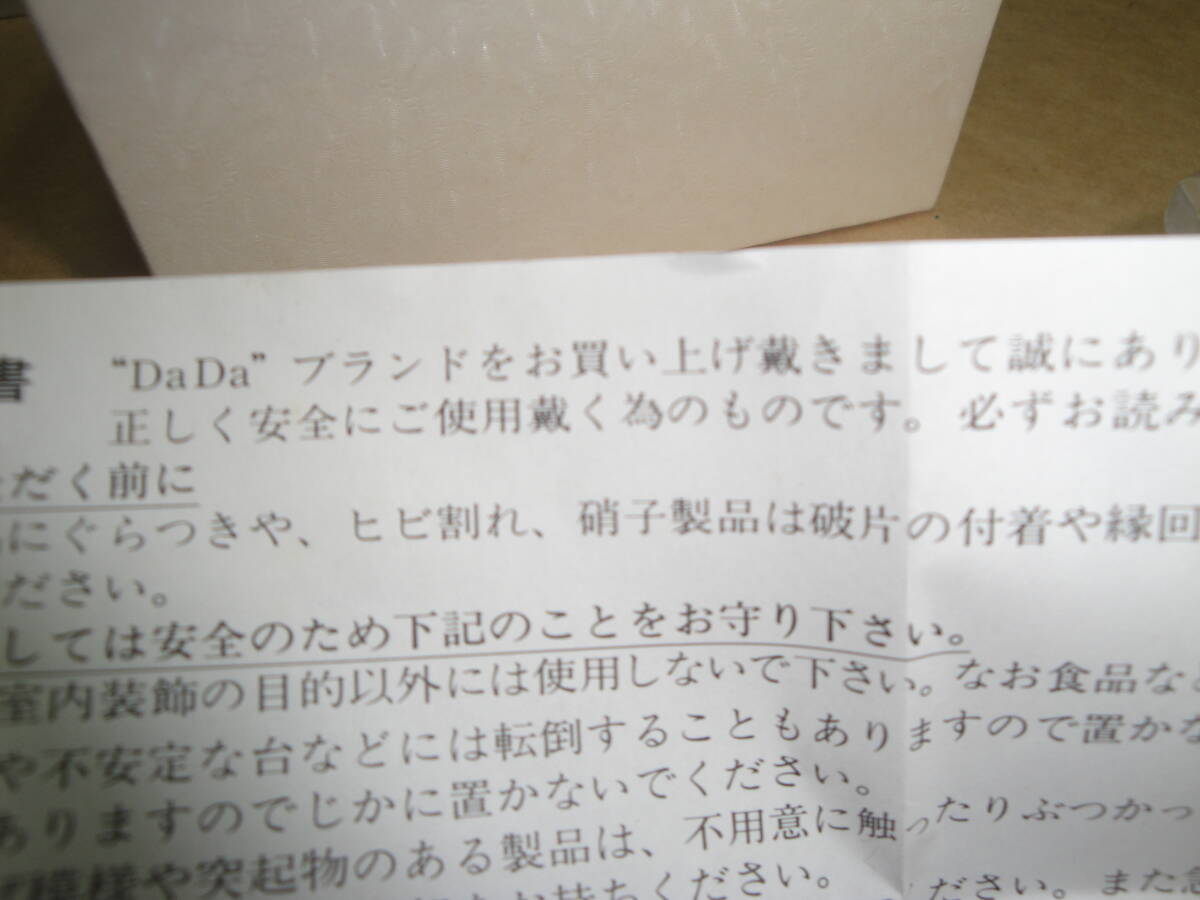 書 “DaDa” ブランドをお買い上げ戴きまして誠にあり
正しく安全にご使用戴く為のものです。必ずお読み
だく前に
にぐらつきや、ヒビ割れ、硝子製品は破片の付着や縁回
ださい。
しては安全のため下記のことをお守り下さい。
室内装飾の目的以外には使用しないで下さい。なお食品など
や不安定な台などには転倒することもありますので置かな
ありますのでじかに置かないでください。
模様や突起物のある製品は、不用意に触ったりぶつかっ
お持ちください。 ださい。また急